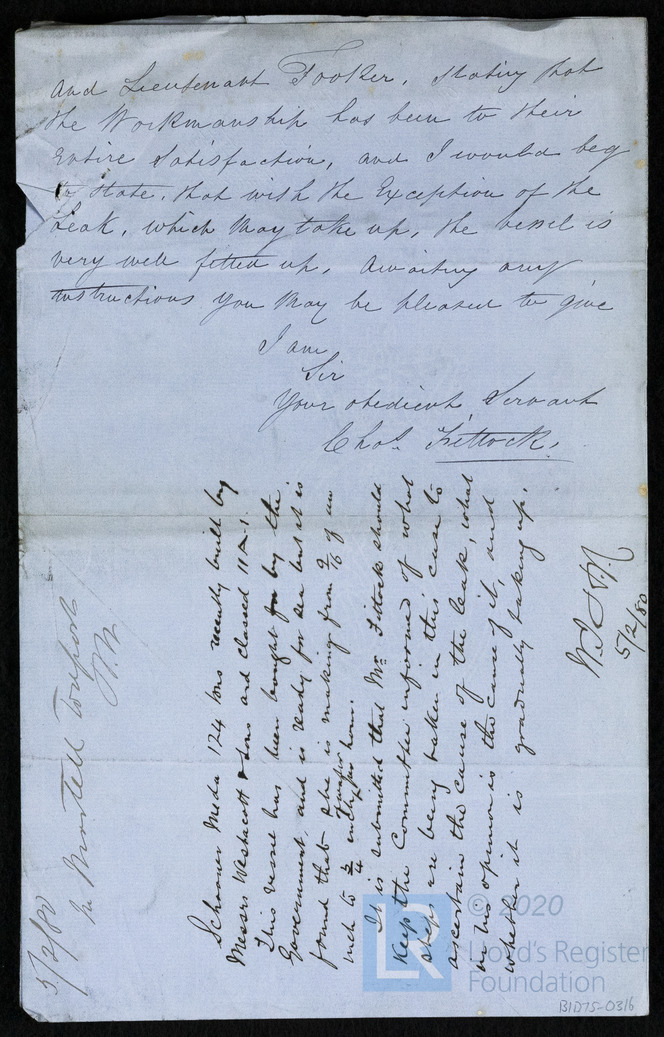 and Lieutenant Tooker, stating that
the Workmanship has been to their
Entire Satisfaction, and I would beg
to state, that with the Exception of the
Leak, which May take up, the vessel is
very well fitted up, Awaiting any
instructions you May be pleased to give
I am
Sir
Your obedient Servant
Chas. Fittock.
Schooner Meda 124 tons recently built by
Messrs Westacott & Sons and classed 11 A-1.
This vessel has been bought for by the
Government, and is ready for sea but it is
found that she is making from 9/16 of an
inch to 3/4 inch per hour.
It is submitted that Mr. Fittock should
keep the Committee informed of what
steps are being taken in this case to
ascertain the cause of the leak, what
in his opinion is the cause of it, and
whether it is gradually taking up.
5/2/80
5/2/80
Mr Martell to report
© 2020
LR
Lloyd's Register
Foundation
BID75-0316